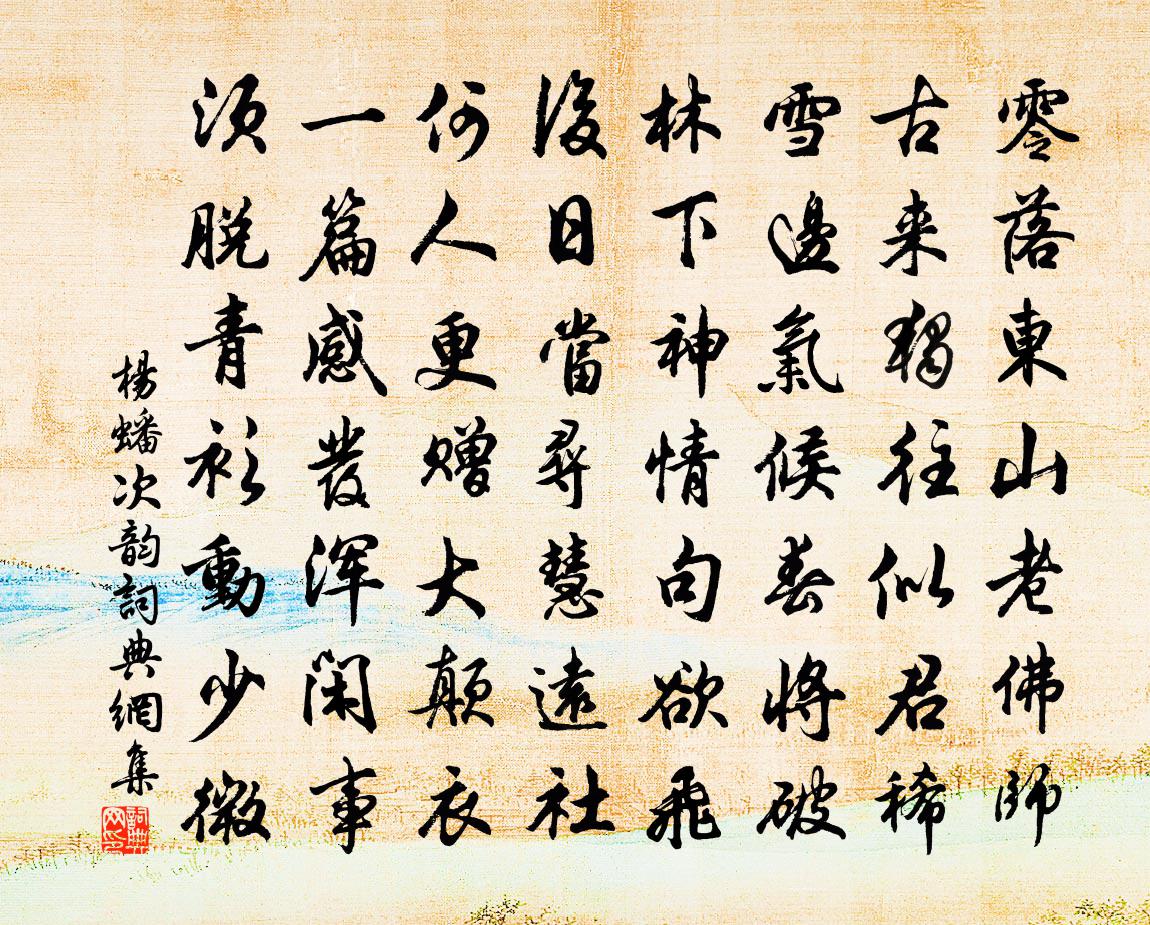 零落東山老佛師
古来獨往似君稀
雪邊氣候春將破
林下神情句欲飛
後日當尋慧遠社
何人更贈大顛衣
一篇感發渾閑事
須脫青衫動少微
楊蟠次韵詞典網集
詞典网印